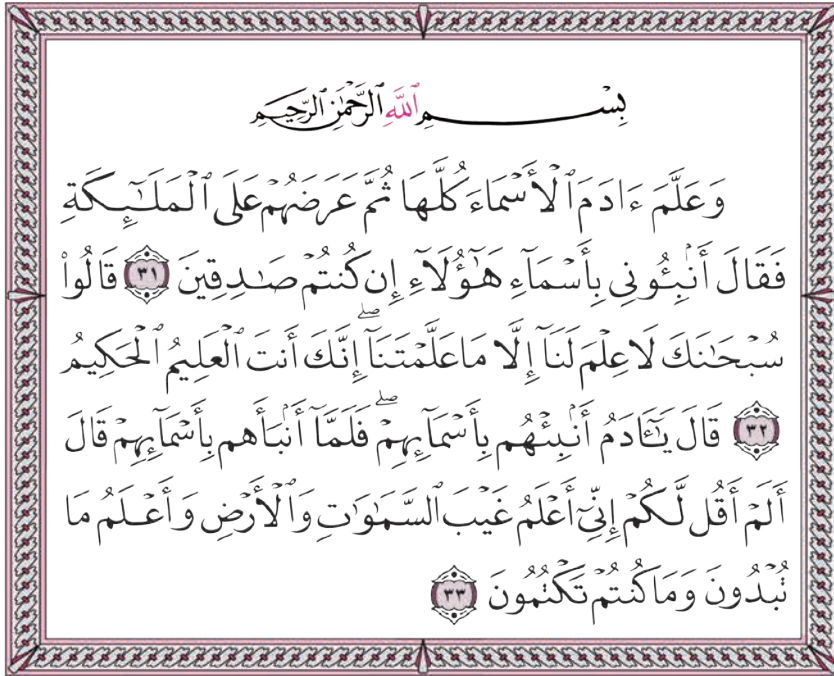 بِسْمِ ٱللَّهِ ٱلرَّحْمَٰنِ ٱلرَّحِيمِ
وَعَلَّمَ ءَادَمَ ٱلْأَسْمَاءَ كُلَّهَا ثُمَّ عَرَضَهُمْ عَلَى ٱلْمَلَـٰٓئِكَةِ
فَقَالَ أَنۢبِـُٔونِى بِأَسْمَآءِ هَـٰٓؤُلَآءِ إِن كُنتُمْ صَـٰدِقِينَ ٣١ قَالُوا۟
سُبْحَـٰنَكَ لَا عِلْمَ لَنَآ إِلَّا مَا عَلَّمْتَنَآ ۖ إِنَّكَ أَنتَ ٱلْعَلِيمُ ٱلْحَكِيمُ
٣٢ قَالَ يَـٰٓـَٔادَمُ أَنۢبِئْهُم بِأَسْمَآئِهِمْ ۖ فَلَمَّآ أَنۢبَأَهُم بِأَسْمَآئِهِمْ قَالَ
أَلَمْ أَقُل لَّكُمْ إِنِّىٓ أَعْلَمُ غَيْبَ ٱلسَّمَـٰوَٰتِ وَٱلْأَرْضِ وَأَعْلَمُ مَا
تُبْدُونَ وَمَا كُنتُمْ تَكْتُمُونَ ٣٣